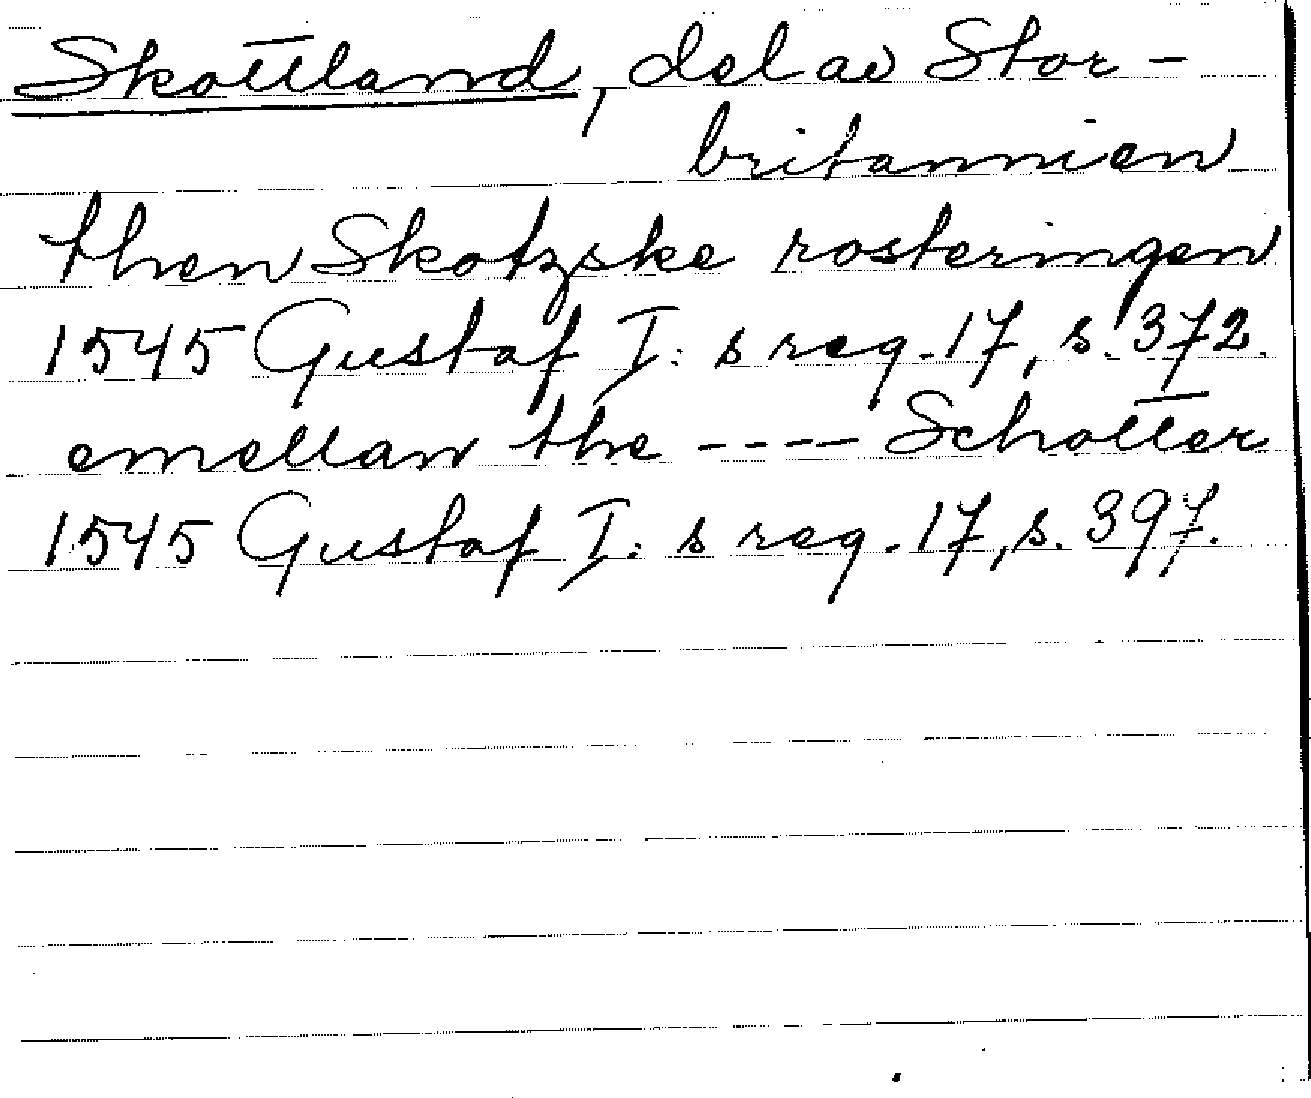 Skottland, del av Stor-
britannien
then Skotzske rosteringen
1545 Gustaf I: s reg. 17, s. 372.
emellan the ---- Schotter
1545 Gustaf I: s reg. 17, s. 397.